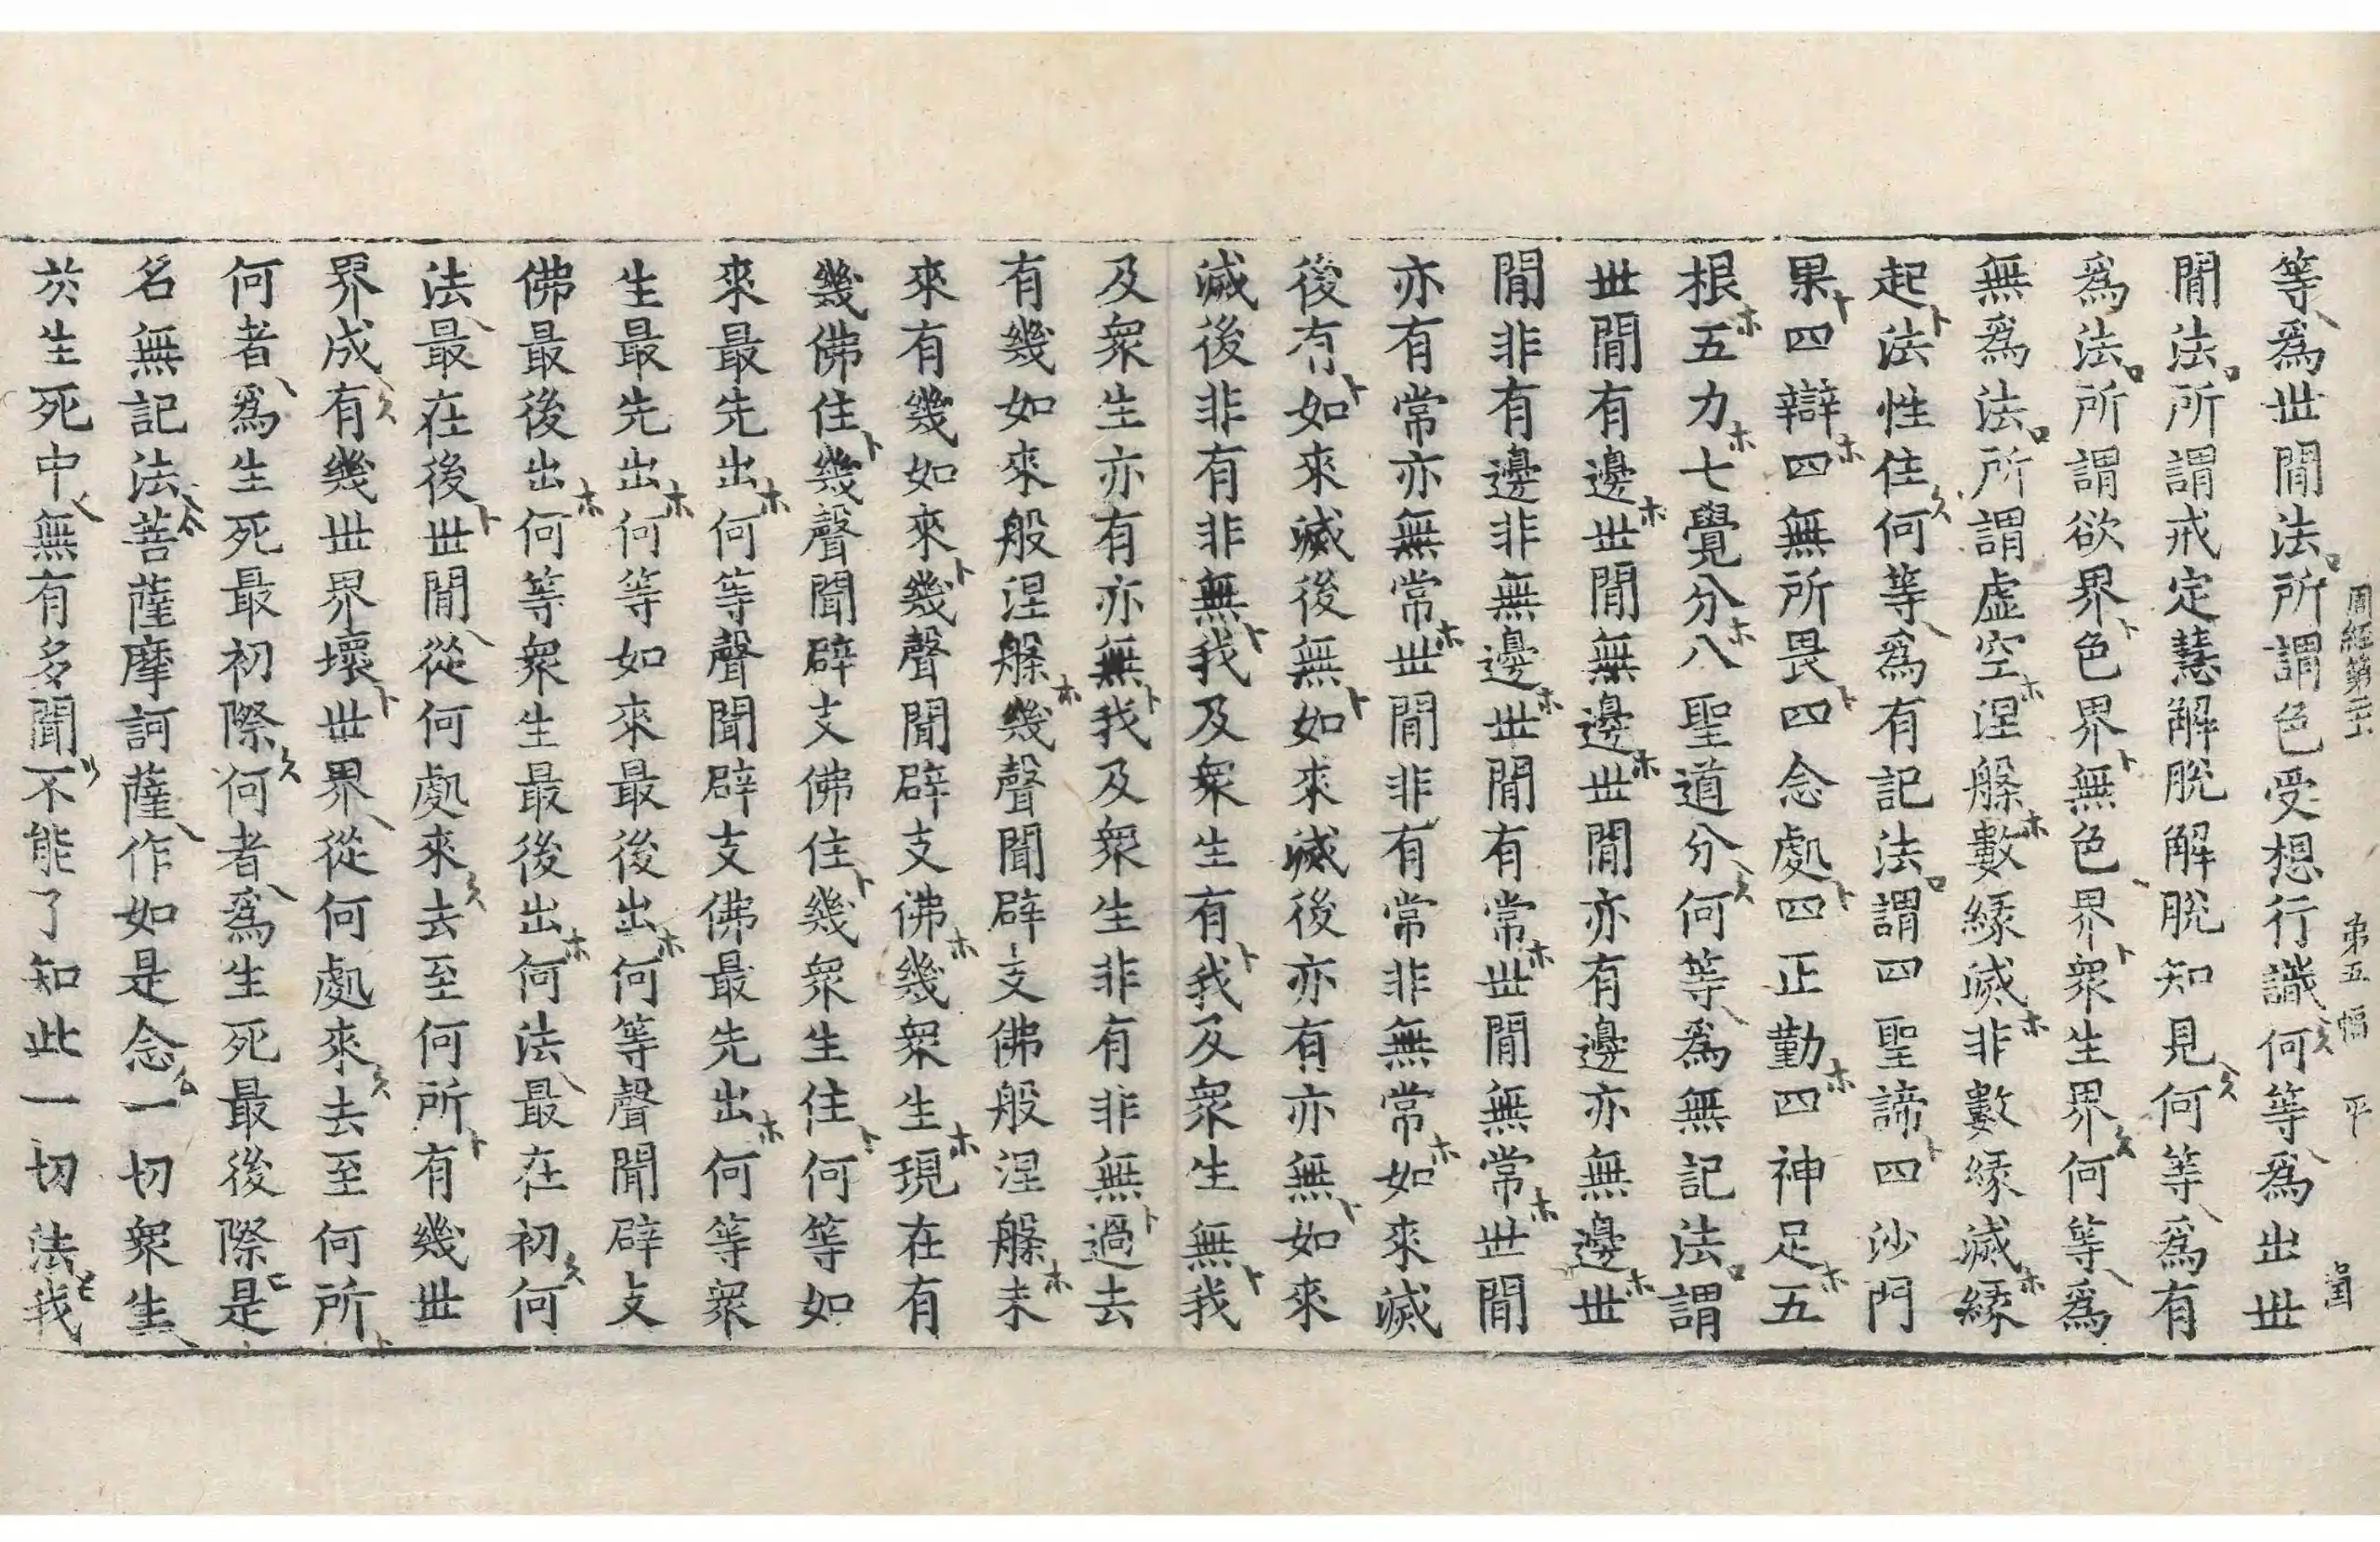 周經第二十一 第五幅 平
等爲世間法所謂色受想行識何等爲出世
間法所謂戒定慧解脫解脫知見何等爲有
爲法所謂欲界色界無色界衆生界何等爲
無爲法所謂虛空涅槃數緣滅非數緣滅緣
起法性住何等爲有記法謂四聖諦四沙門
果四辯四無所畏四念處四正勤四神足五
根五力七覺分八聖道分何等爲無記法謂
世間有邊世間無邊世間亦有邊亦無邊世
間非有邊非無邊世間有常世間無常世間
亦有常亦無常世間非有常非無常如來滅
後有如來滅後無如來滅後亦有亦無如來
滅後非有非無我及衆生有我及衆生無我
及衆生亦有亦無我及衆生非有非無過去
有幾如來般涅槃幾聲聞辟支佛般涅槃未
來有幾如來幾聲聞辟支佛幾衆生現在有
幾佛住幾聲聞辟支佛住幾衆生住何等如
來最先出何等聲聞辟支佛最先出何等衆
生最先出何等如來最後出何等聲聞辟支
佛最後出何等衆生最後出何法最在初何
法最在後世間從何處來去至何所有幾世
界成有幾世界壞世界從何處來去至何所
何者爲生死最初際何者爲生死最後際是
名無記法菩薩摩訶薩作如是念一切衆生
於生死中無有多聞不能了知此一切法我